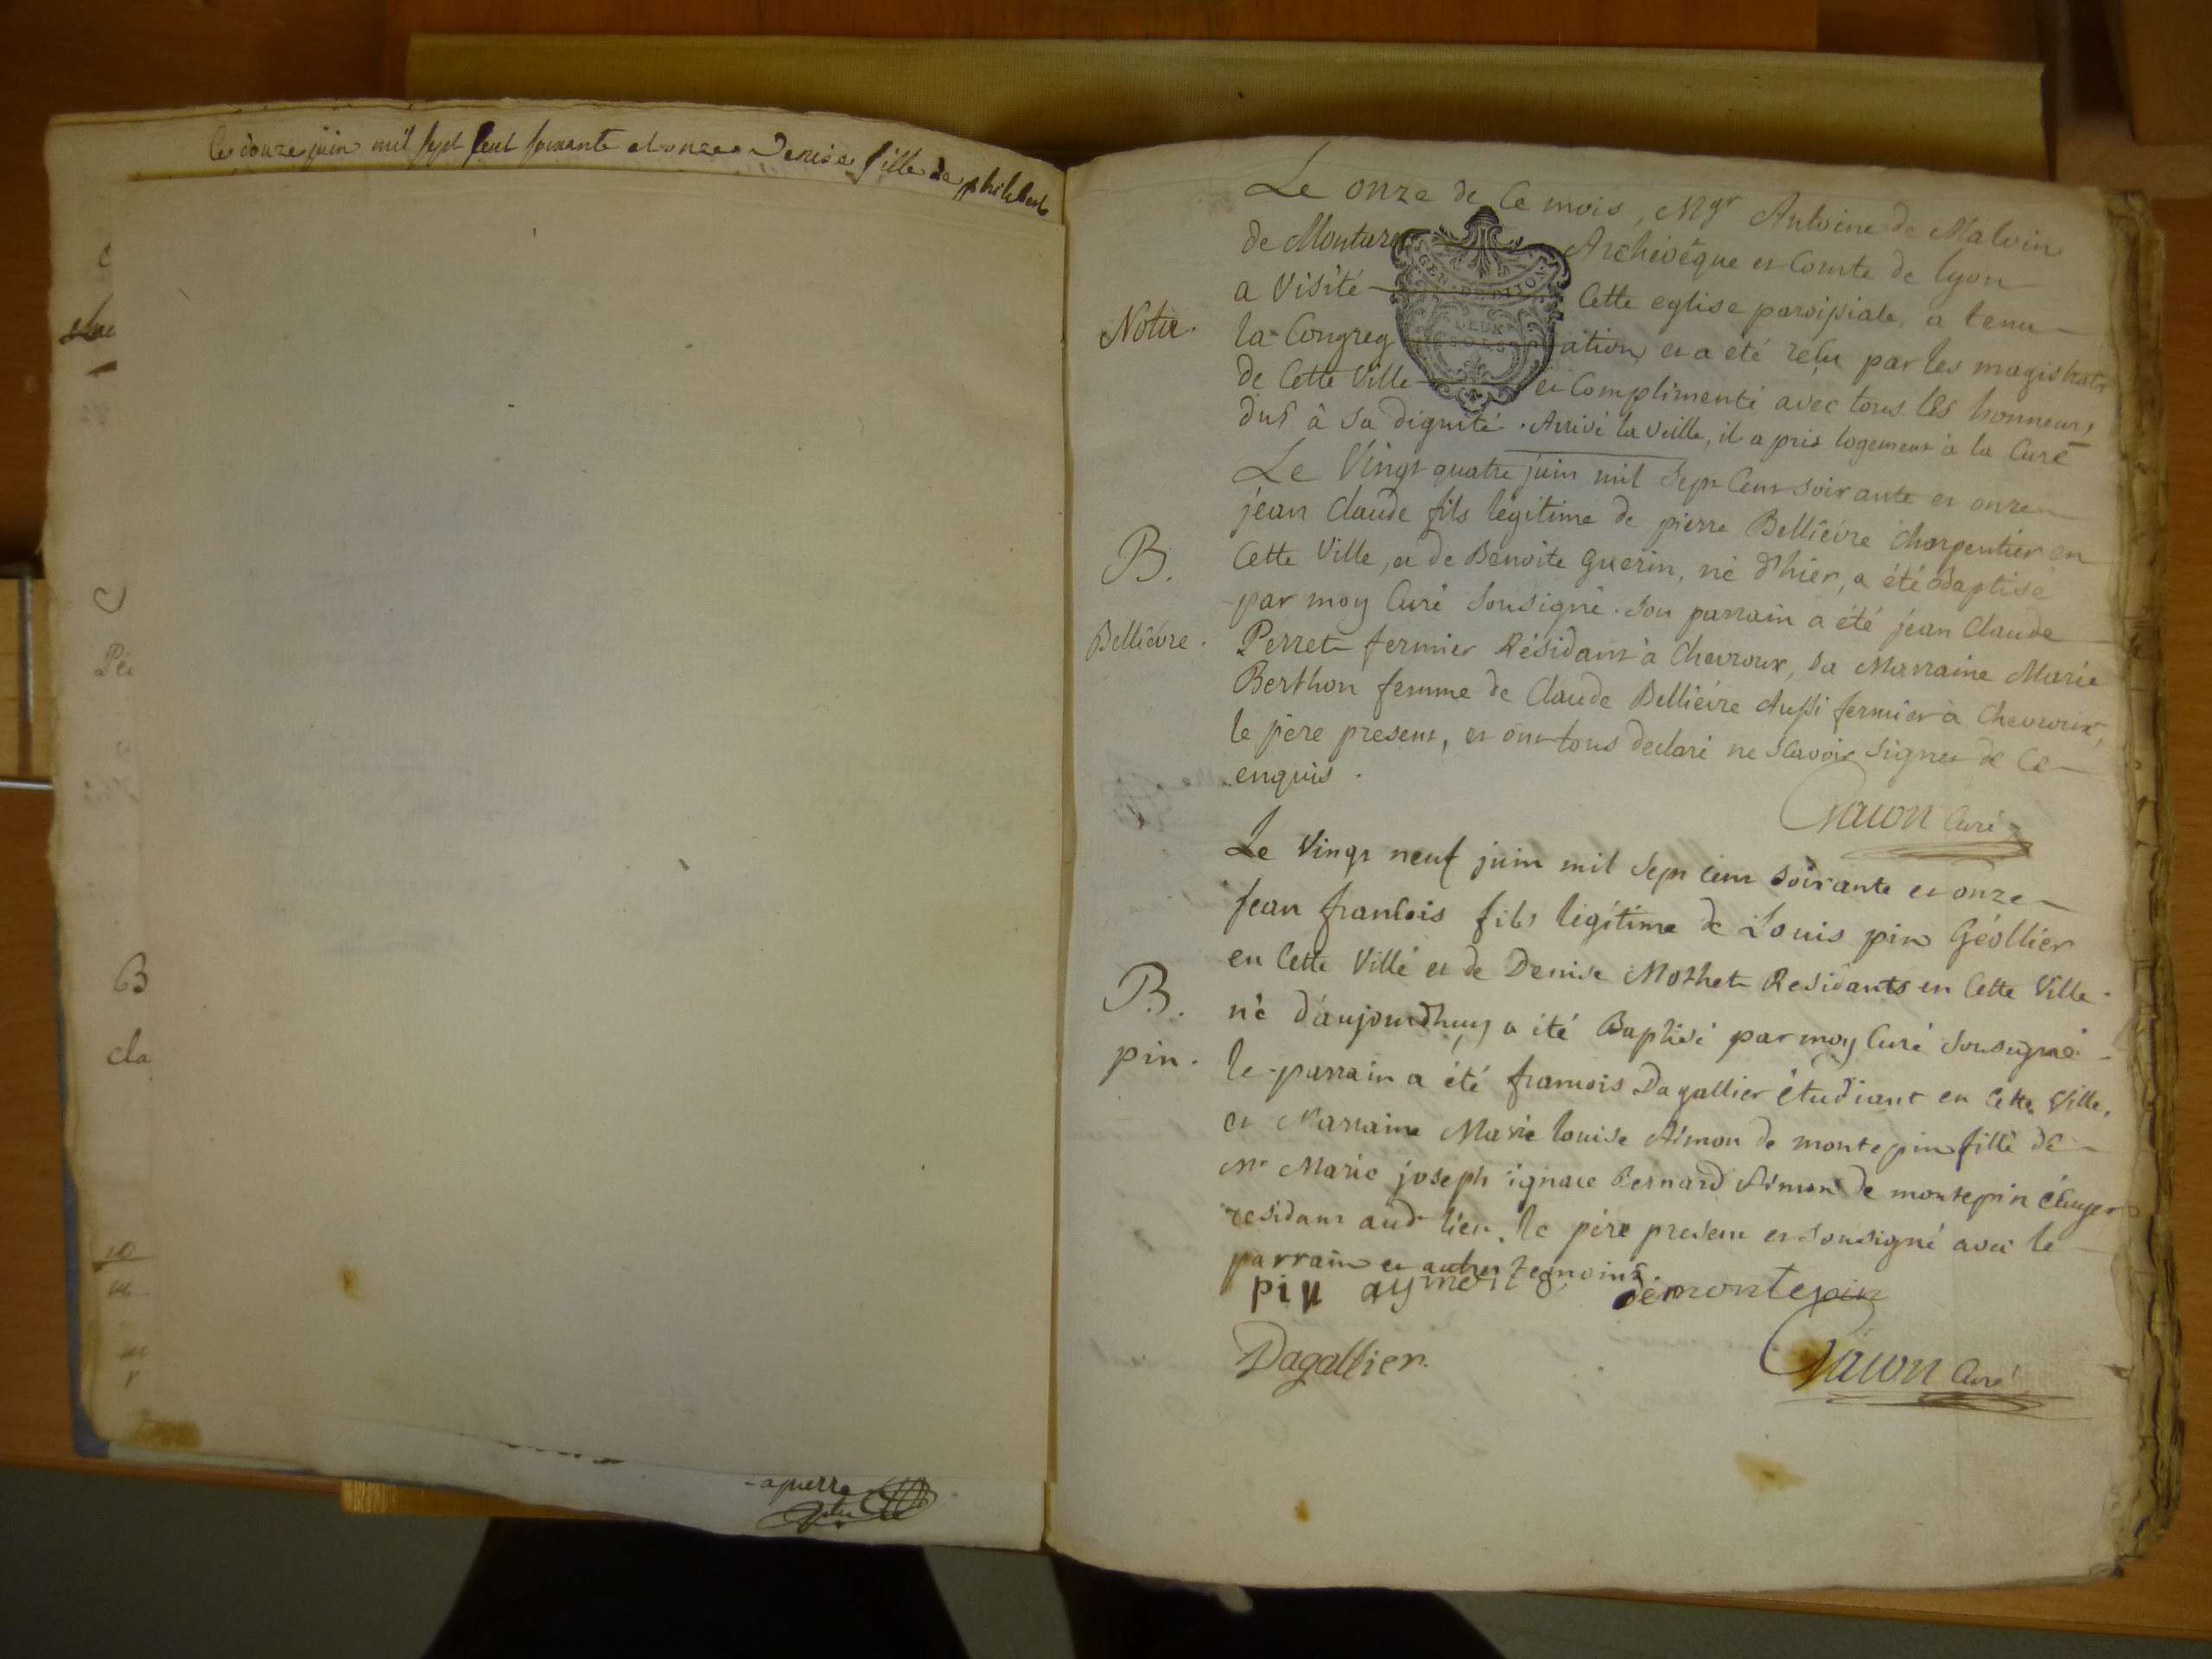 le douze juin mil sept cent soixante et onze Denise fille de philibert
Le onze de Ce mois, Mgr Antoine de Malvin
de Montaze Archevêque et Comte de lyon
a Visité Cette eglise paroissiale, a tenu
Nota.
la Congreg ation, et a eté reçu par les magistrats
de Cette Ville et Complimenté avec tous les honneurs
dus à sa dignité. Arrivé la veille, il a pris logement à la Cure
GEN. DE DIJON
DEUX
SOLS
Le Vingt quatre juin mil Sept Cent soixante et onze
jean Claude fils legitime de pierre Bellièvre charpentier en
B.
Cette Ville, et de Benoite Guerin, né d'hier, a été baptisé
par moy Curé Sousigné. Son parrain a été jean Claude
Bellièvre.
Perret fermier Résidant à Chevroux, sa Marraine Marie
Berthon femme de Claude Bellièvre Aussi fermier à Chevroux,
le père present, et ont tous declaré ne sçavoir signer de Ce
enquis.
Curé
Le Vingt neuf juin mil Sept cent soixante et onze
Jean francois fils légitime de Louis pin Géollier
en Cette Ville et de Denise Mothet Residants en Cette Ville
B.
né d'aujourdhuy a été Baptisé par moy Curé Sousigné
pin.
le parrain a été francois Dagallier étudiant en Cette Ville,
et Marraine Marie louise Aimon de montepin fille de
Mr Marie joseph ignace Bernard Aimon de montepin écuyer
residant aud. lieu, le père present et sousigné avec le
parrain et autres temoins.
pin aymon demontepin
Dagallier
Curé
B
cla